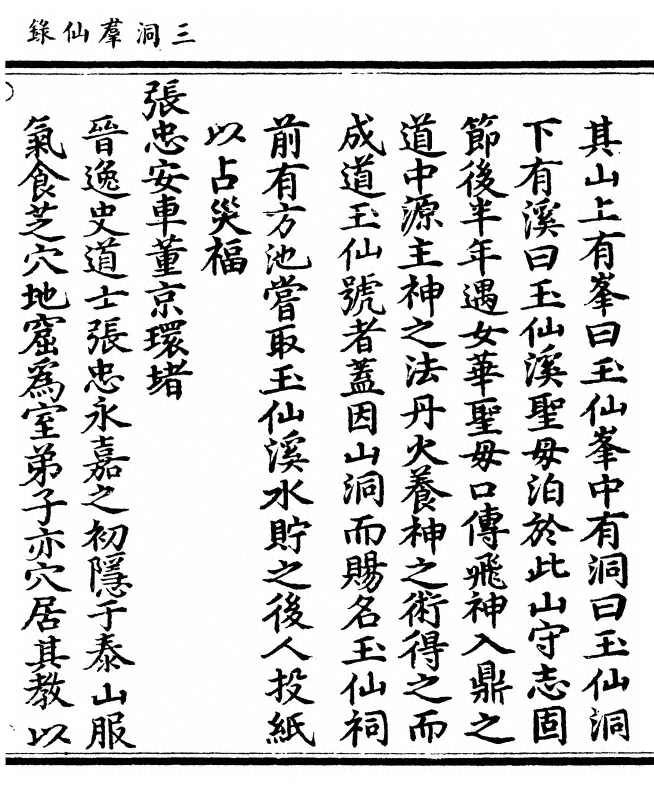 三洞羣仙錄
其山上有峯曰玉仙峯中有洞曰玉仙洞
下有溪曰玉仙溪聖毋泊於此山守志固
節後半年遇女華聖毋口傳飛神入鼎之
道中源主神之法丹火養神之術得之而
成道玉仙號者蓋因山洞而賜名玉仙祠
前有方池嘗取玉仙溪水貯之後人投紙
以占災福
張忠安車董京環堵
晉逸史道士張忠永嘉之初隱于泰山服
氣食芝穴地窟為室弟子亦穴居其教以